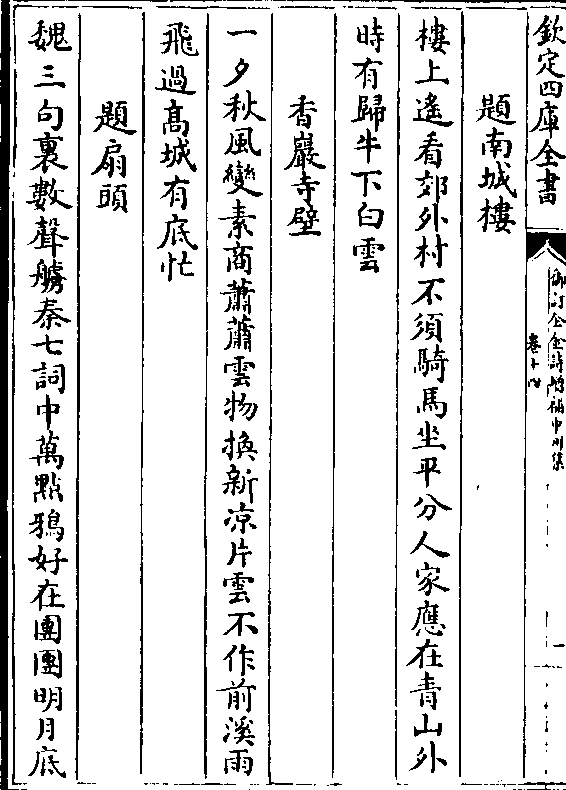 欽定四庫全書
御訂全金詩增補中州集
卷十四
題南城樓
樓上遙看郊外村不須騎馬坐平分人家應在青山外
時有歸牛下白雲
香巖寺壁
一夕秋風變素商蕭蕭雲物換新凉片雲不作前溪雨
飛過髙城有底忙
題扇頭
魏三句裏數聲艣秦七詞中萬點鴉好在團團明月底